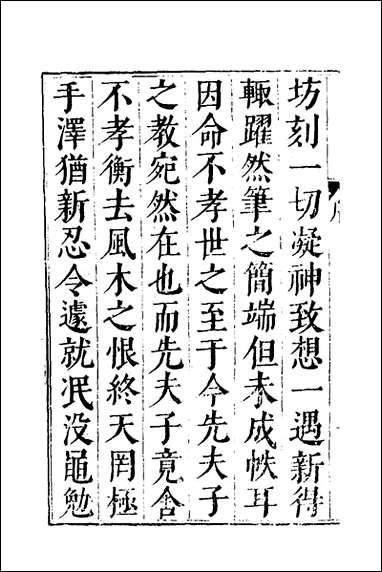 坊刻一切凝神致想一遇新得
輒躍然筆之簡端但未成帙耳
因命不孝世之至于今先夫子
之教宛然在也而先夫子竟舍
不孝衡去風木之恨終天罔極
手澤猶新忍令遽就泯没黽勉